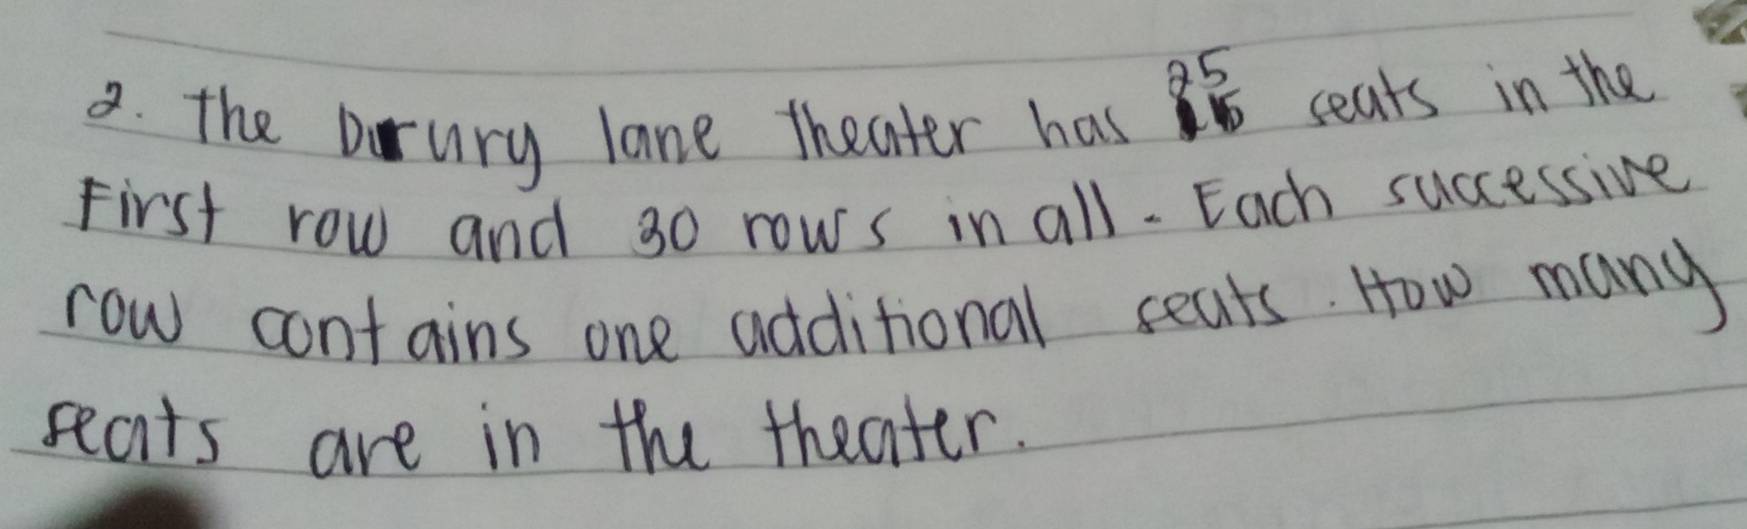 2. The Drury lane theater has 25 seats in the
First row and 30 rows in all. Each successive
row contains one additional seats. How many
seats are in the theater.